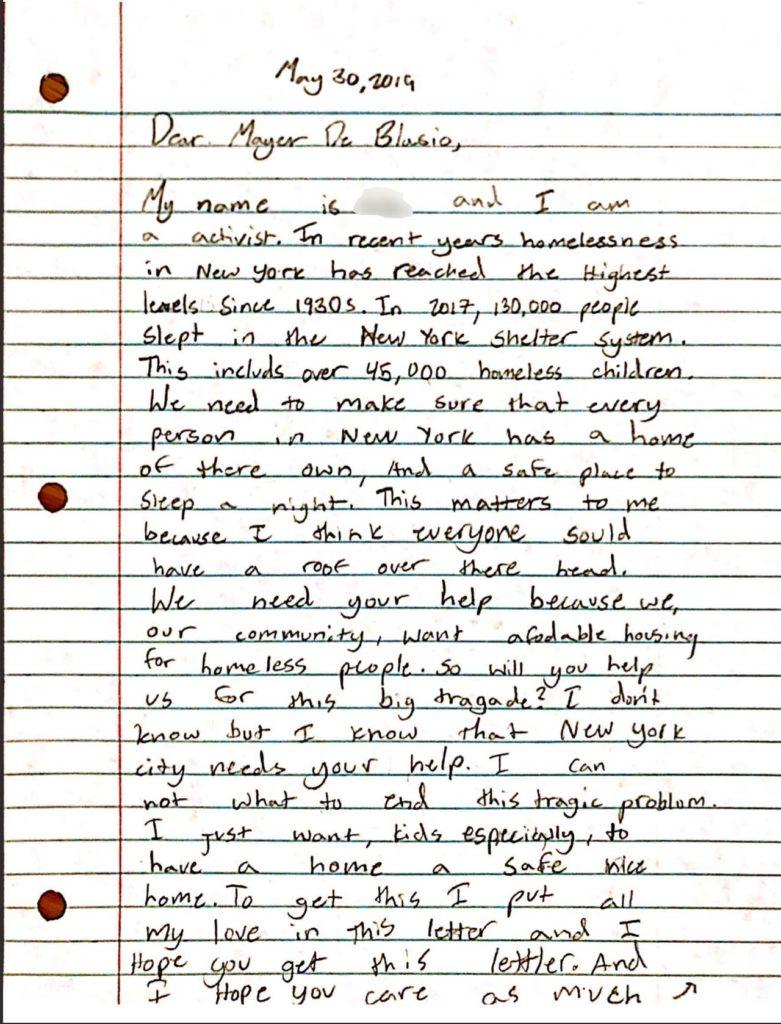 May 30, 2019
Dear Mayer De Blasio,
My name is and I am
a activist. In recent years homelessness
in New York has reached the Highest
levels since 1930s. In 2017, 130,000 people
slept in the New York shelter system.
This includs over 45,000 homeless children.
We need to make sure that every
person in New York has a home
of there own, And a safe place to
sleep a night. This matters to me
because I think everyone sould
have a roof over there head.
We need your help because we,
our community, want afodable housing
for homeless people. So will you help
us for this big tragade? I don't
know but I know that New York
city needs your help. I can
not what to end this tragic problom.
I just want, kids especially, to
have a home a safe nice
home. To get this I put all
my love in this letter and I
Hope you get this lettler. And
I Hope you care as much ↗